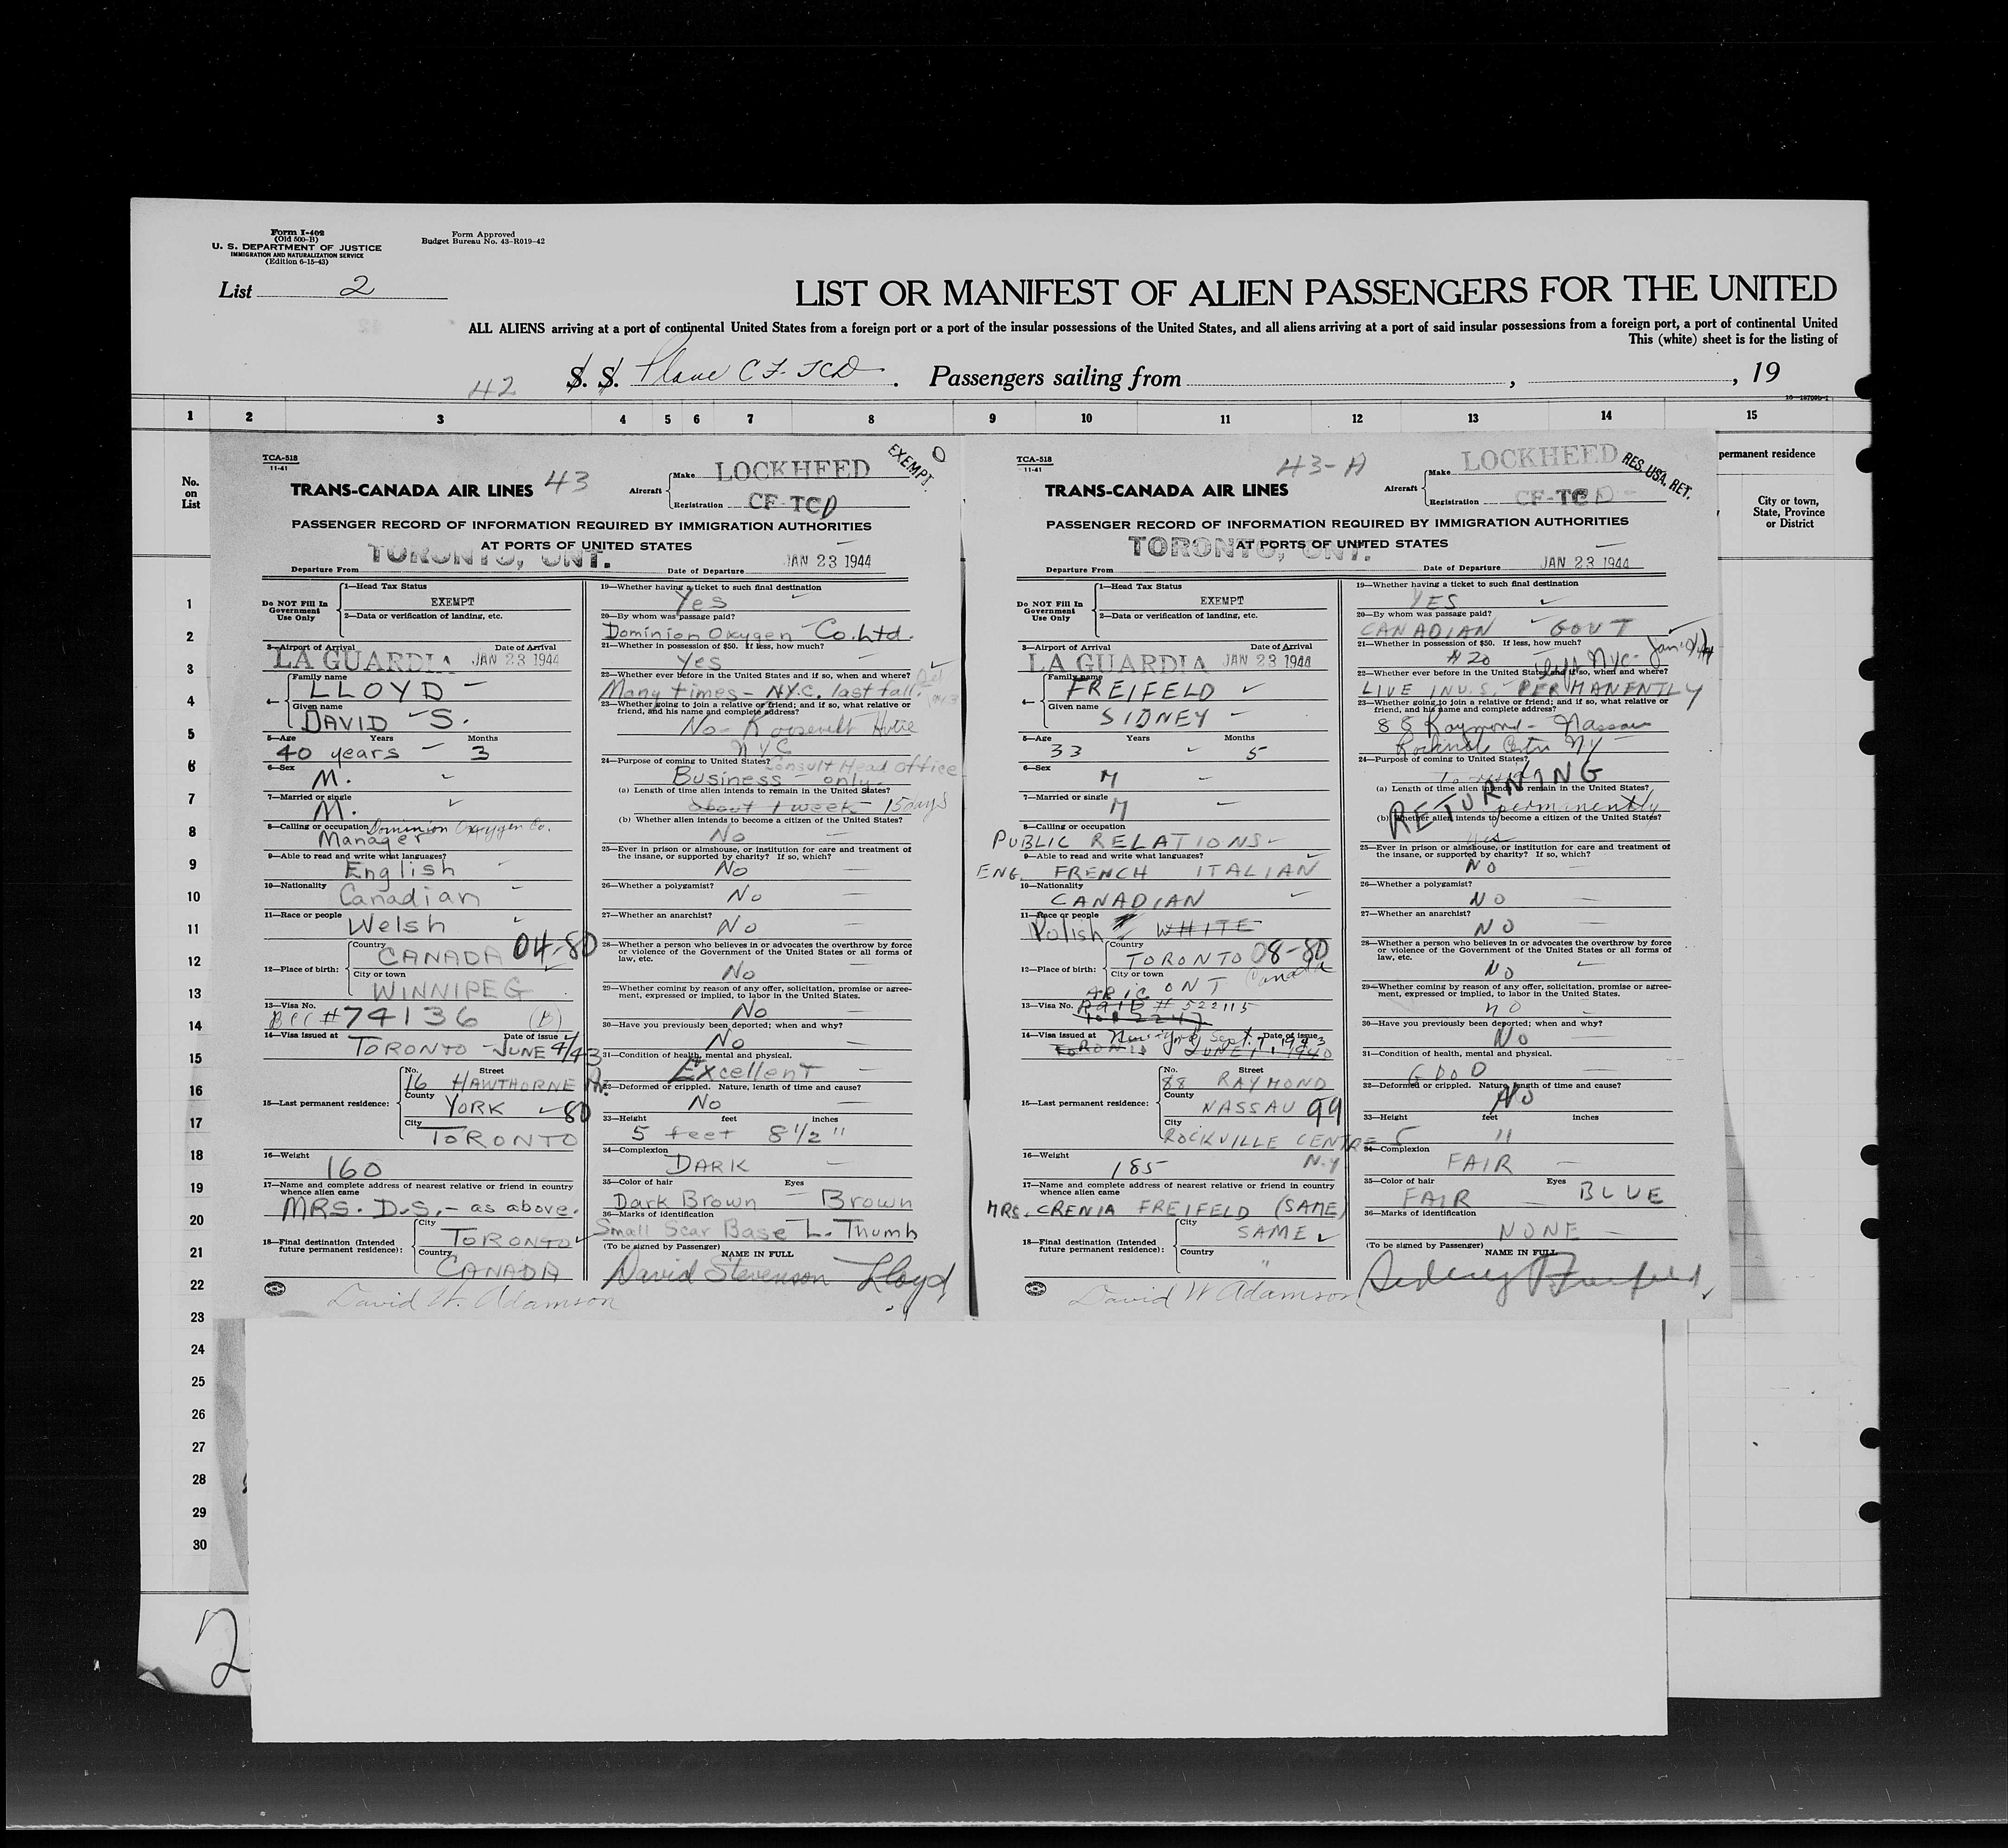 Form I-402
(Old 500-B)
U. S. DEPARTMENT OF JUSTICE
IMMIGRATION AND NATURALIZATION SERVICE
(Edition 6-15-43)
Form Approved
Budget Bureau No. 43-R019-42
List 2
LIST OR MANIFEST OF ALIEN PASSENGERS FOR THE UNITED
ALL ALIENS arriving at a port of continental United States from a foreign port or a port of the insular possessions of the United States, and all aliens arriving at a port of said insular possessions from a foreign port, a port of continental United
This (white) sheet is for the listing of
42 S. S. Plane CF-TCD. Passengers sailing from , , 19
1 2 3 4 5 6 7 8 9 10 11 12 13 14 15
No.
on
List
permanent residence
City or town,
State, Province
or District
1
2
3
4
5
6
7
8
9
10
11
12
13
14
15
16
17
18
19
20
21
22
23
24
25
26
27
28
29
30
2
TCA-518
11-41
43
Aircraft Make LOCKHEED
EXEMPT.
TRANS-CANADA AIR LINES
Registration CF-TCD
PASSENGER RECORD OF INFORMATION REQUIRED BY IMMIGRATION AUTHORITIES
AT PORTS OF UNITED STATES
Departure From TORONTO, ONT.
Date of Departure JAN 23 1944
Do NOT Fill In
Government
Use Only
1—Head Tax Status
EXEMPT
2—Data or verification of landing, etc.
3—Airport of Arrival Date of Arrival
LA GUARDIA JAN 23 1944
4— Family name
LLOYD
Given name
DAVID S.
5—Age Years Months
40 years 3
6—Sex
M.
7—Married or single
M.
8—Calling or occupation Dominion Oxygen Co.
Manager
9—Able to read and write what languages?
English
10—Nationality
Canadian
11—Race or people
Welsh
12—Place of birth: Country
CANADA 04-80
City or town
WINNIPEG
13—Visa No.
BCC #74136 (B)
14—Visa issued at Date of issue
TORONTO - JUNE 4/43
15—Last permanent residence: No. Street
16 HAWTHORNE Av.
County
YORK 80
City
TORONTO
16—Weight
160
17—Name and complete address of nearest relative or friend in country
whence alien came
MRS. D.S. - as above.
18—Final destination (Intended
future permanent residence): City
TORONTO
Country
CANADA
David W. Adamson
19—Whether having a ticket to such final destination
Yes
20—By whom was passage paid?
Dominion Oxygen Co. Ltd.
21—Whether in possession of $50. If less, how much?
Yes
22—Whether ever before in the United States and if so, when and where?
Many times - N.Y.C. last fall.
23—Whether going to join a relative or friend; and if so, what relative or
friend, and his name and complete address?
No - Roosevelt Hotel
NYC
24—Purpose of coming to United States? Consult Head Office
Business - only
(a) Length of time alien intends to remain in the United States?
about 1 week - 15 days
(b) Whether alien intends to become a citizen of the United States?
No
25—Ever in prison or almshouse, or institution for care and treatment of
the insane, or supported by charity? If so, which?
No
26—Whether a polygamist?
No
27—Whether an anarchist?
No
28—Whether a person who believes in or advocates the overthrow by force
or violence of the Government of the United States or all forms of
law, etc.
No
29—Whether coming by reason of any offer, solicitation, promise or agree-
ment, expressed or implied, to labor in the United States.
No
30—Have you previously been deported; when and why?
No
31—Condition of health, mental and physical.
Excellent
32—Deformed or crippled. Nature, length of time and cause?
No
33—Height feet inches
5 feet 8 1/2 "
34—Complexion
DARK
35—Color of hair Eyes
Dark Brown Brown
36—Marks of identification
Small Scar Base L. Thumb
(To be signed by Passenger) NAME IN FULL
David Stevenson Lloyd
TCA-518
11-41
43-A
Aircraft Make LOCKHEED
RES. USA. RET.
TRANS-CANADA AIR LINES
Registration CF-TCD
PASSENGER RECORD OF INFORMATION REQUIRED BY IMMIGRATION AUTHORITIES
AT PORTS OF UNITED STATES
Departure From TORONTO, ONT.
Date of Departure JAN 23 1944
Do NOT Fill In
Government
Use Only
1—Head Tax Status
EXEMPT
2—Data or verification of landing, etc.
3—Airport of Arrival Date of Arrival
LA GUARDIA JAN 23 1944
4— Family name
FREIFELD
Given name
SIDNEY
5—Age Years Months
33 5
6—Sex
M
7—Married or single
M
8—Calling or occupation
PUBLIC RELATIONS
9—Able to read and write what languages?
ENG. FRENCH ITALIAN
10—Nationality
CANADIAN
11—Race or people
Polish WHITE
12—Place of birth: Country
TORONTO 08-80
City or town
ONT Canada
13—Visa No. # 522115
14—Visa issued at Date of issue
New York Sept. 7, 1943
TORONTO JUNE 11, 1940
15—Last permanent residence: No. Street
88 RAYMOND
County
NASSAU 99
City
ROCKVILLE CENTRE
N.Y
16—Weight
185
17—Name and complete address of nearest relative or friend in country
whence alien came
MRS. CRENIA FREIFELD (SAME)
18—Final destination (Intended
future permanent residence): City
SAME
Country
"
David W Adamson
19—Whether having a ticket to such final destination
YES
20—By whom was passage paid?
CANADIAN GOVT
21—Whether in possession of $50. If less, how much?
$20
22—Whether ever before in the United States and if so, when and where?
LIVE IN U.S. PERMANENTLY
23—Whether going to join a relative or friend; and if so, what relative or
friend, and his name and complete address?
88 Raymond - Nassau
Rockville Centre NY
24—Purpose of coming to United States?
RETURNING
(a) Length of time alien intends to remain in the United States?
permanently
(b) Whether alien intends to become a citizen of the United States?
Yes
25—Ever in prison or almshouse, or institution for care and treatment of
the insane, or supported by charity? If so, which?
NO
26—Whether a polygamist?
NO
27—Whether an anarchist?
NO
28—Whether a person who believes in or advocates the overthrow by force
or violence of the Government of the United States or all forms of
law, etc.
NO
29—Whether coming by reason of any offer, solicitation, promise or agree-
ment, expressed or implied, to labor in the United States.
no
30—Have you previously been deported; when and why?
No
31—Condition of health, mental and physical.
GOOD
32—Deformed or crippled. Nature, length of time and cause?
No
33—Height feet inches
5 11
34—Complexion
FAIR
35—Color of hair Eyes
FAIR BLUE
36—Marks of identification
NONE
(To be signed by Passenger) NAME IN FULL
Sidney Freifeld